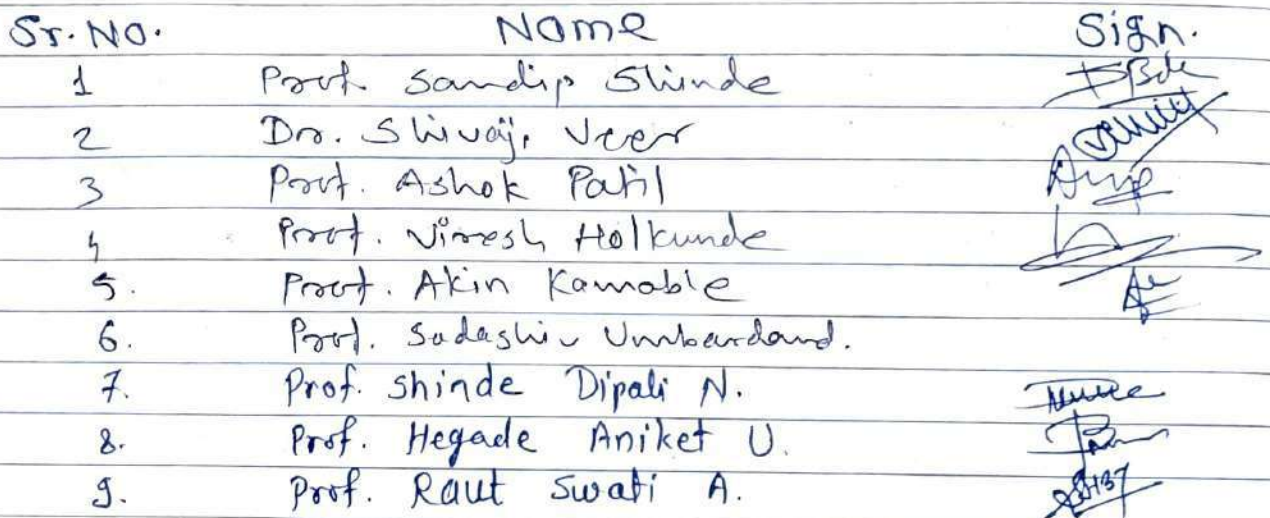 Sr. No. Name Sign.
1 Prof. Sandip Shinde
2 Dr. Shivaji Veer
3 Prof. Ashok Patil
4 Prof. Viresh Holkunde
5. Prof. Akin Kamable
6. Prof. Sadashiv Umbardand.
7. Prof. Shinde Dipali N.
8. Prof. Hegade Aniket U.
9. Prof. Raut Swati A.